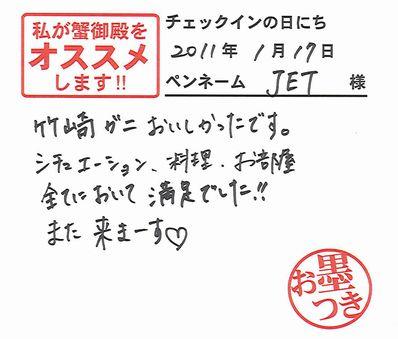 私が蟹御殿を
オススメ
します!!
チェックインの日にち
2011年 1月17日
ペンネーム JET 様
竹崎ガニおいしかったです。
シチュエーション、料理、お部屋
全てにおいて満足でした!!
また来まーす♡
お墨つき